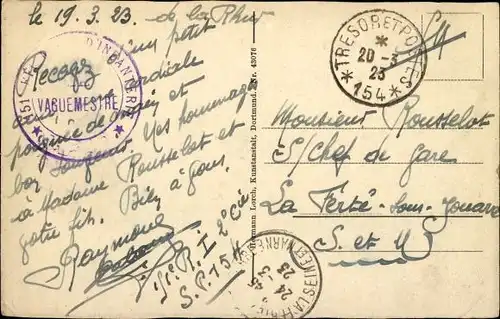 le 19.3.23. de la Rhur
Recevez d'un petit
cordiale
poignée de main et
bon souvenir. Mes hommages
à Madame Rousselot et
votre fils. Bien à vous.
Raymond
2e Cie
S.P. 154
151 D'INFANTERIE
VAGUEMESTRE
Hermann Lorch, Kunstanstalt, Dortmund. Nr. 43076
TRESOR ET POSTES
20-3
23
*154*
FM
Monsieur Rousselot
S/Chef de gare
La Ferté-sous-Jouarre
S. et M.
24-3
23